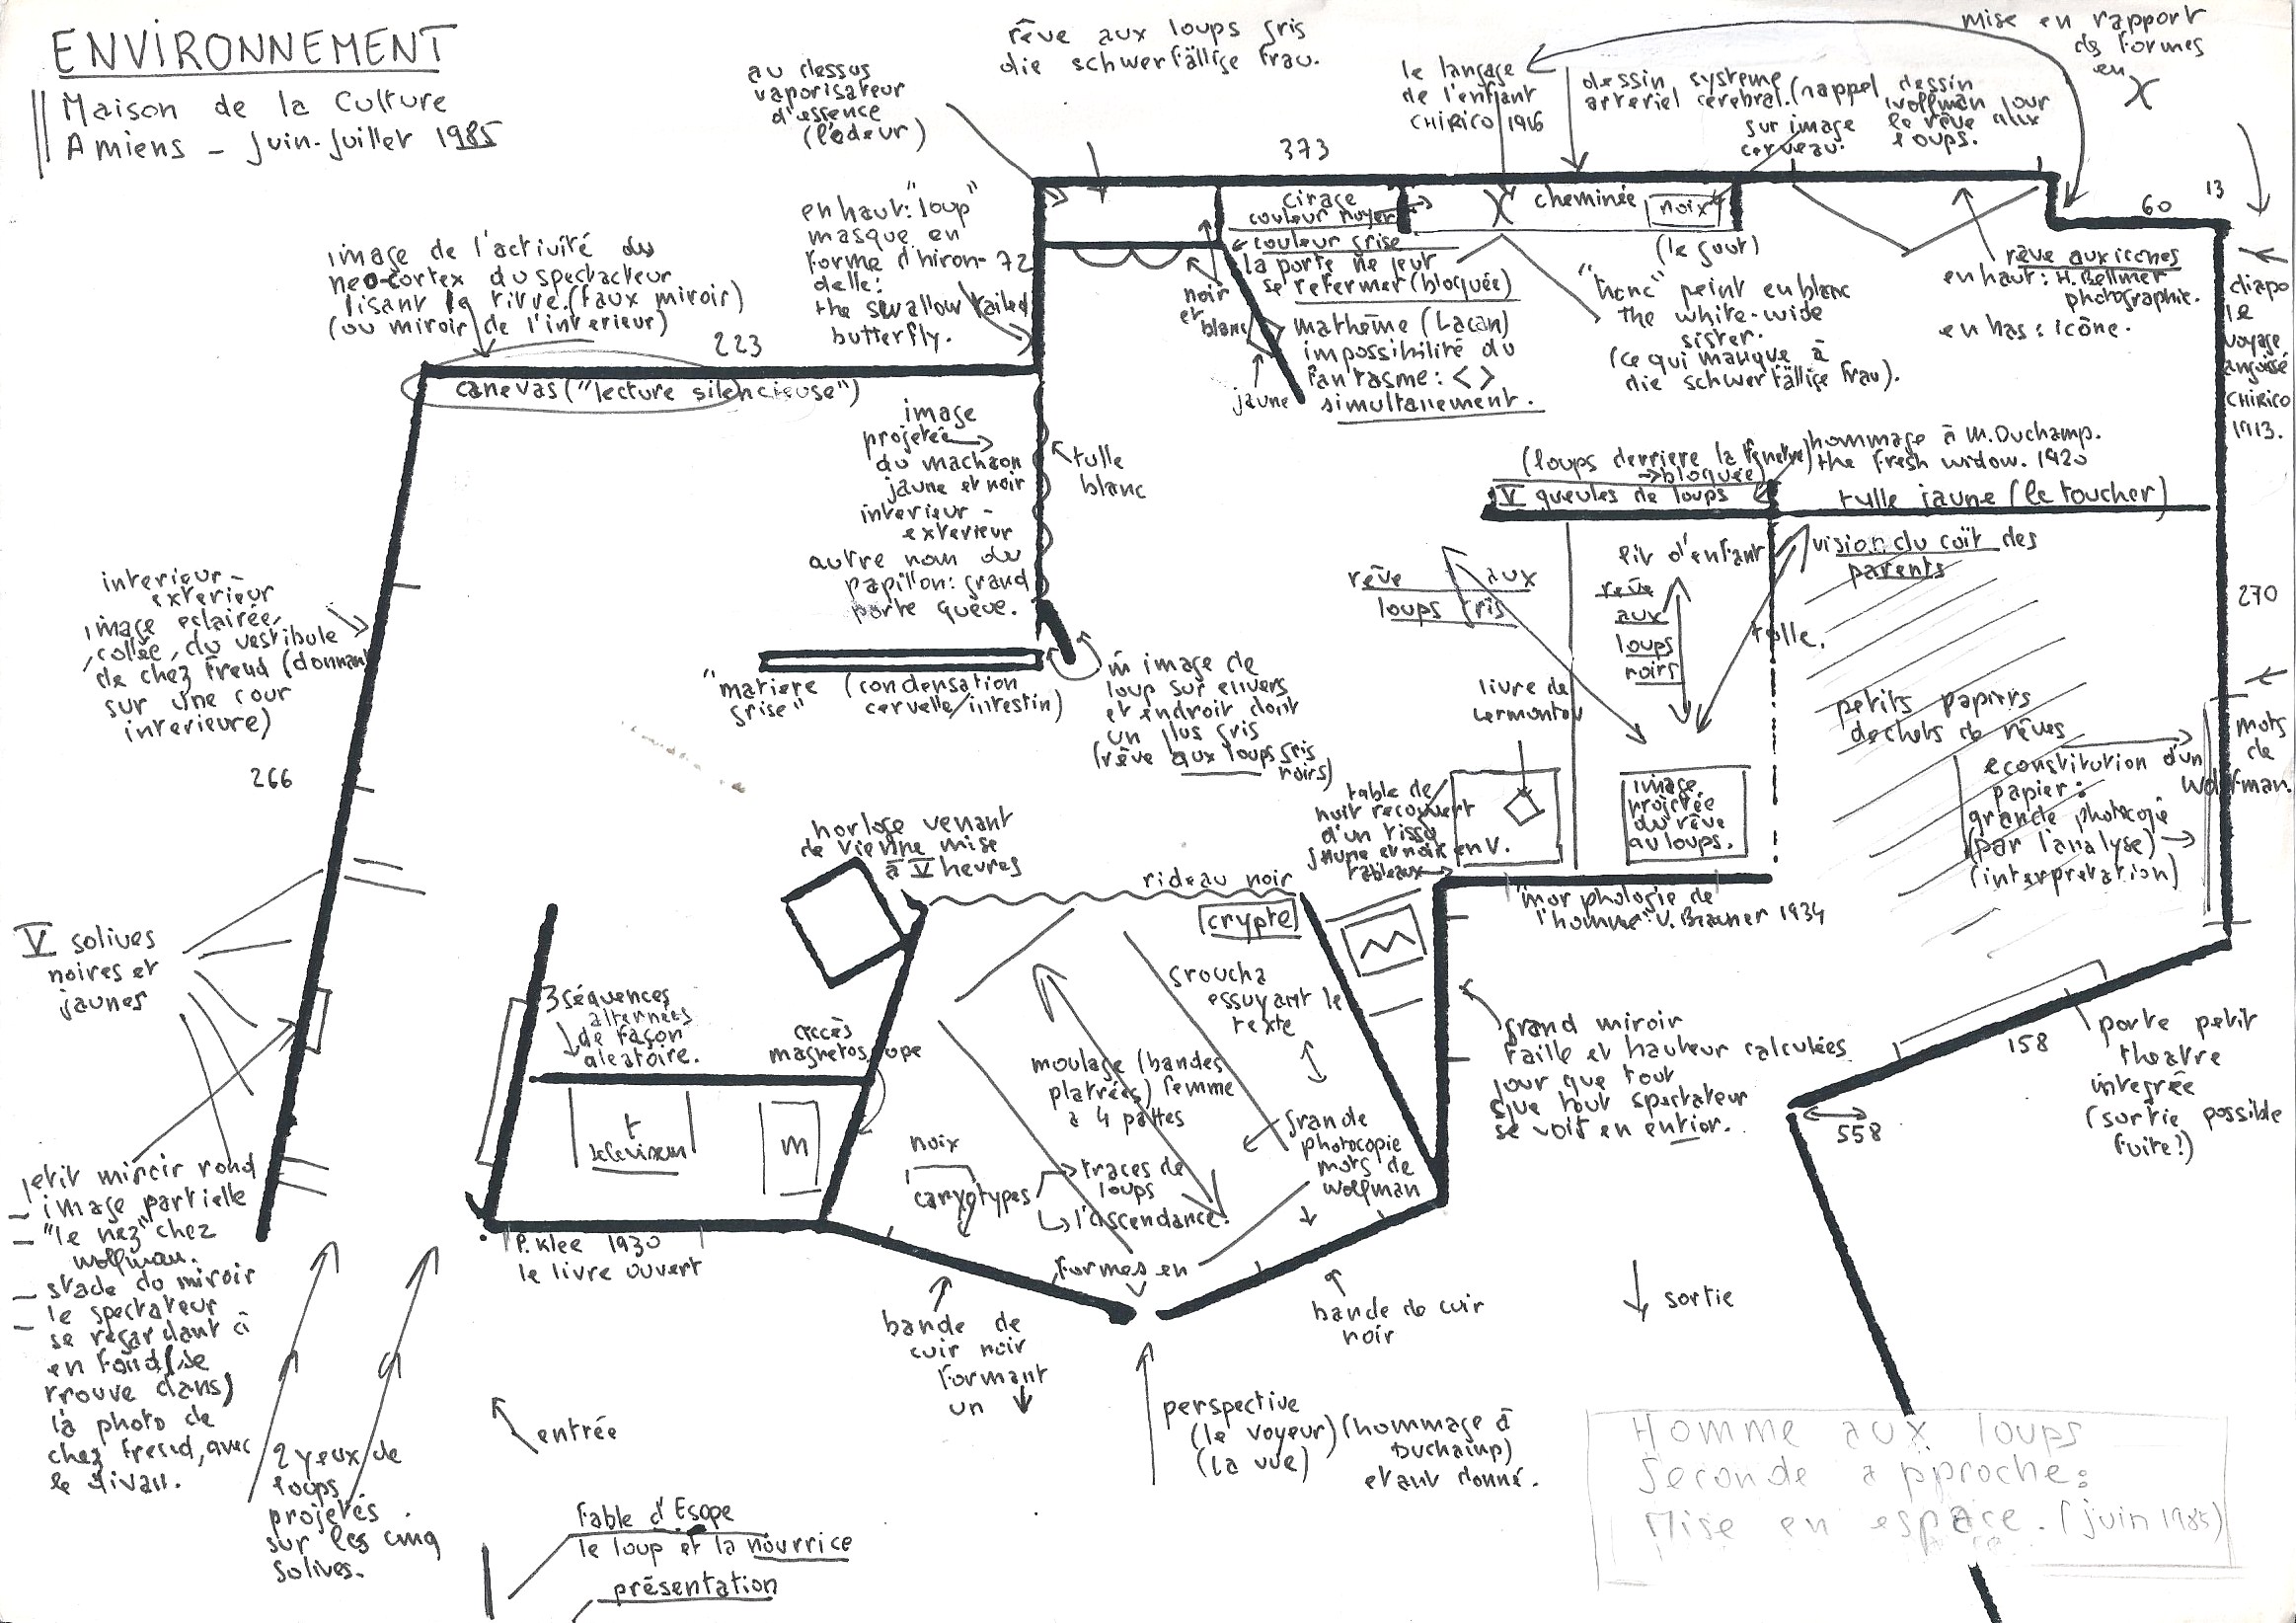 ENVIRONNEMENT
Maison de la Culture
Amiens - Juin-Juillet 1985
au dessus
vaporisateur
d'essence
(l'odeur)
rêve aux loups gris
die schwerfällige Frau.
le langage
de l'enfant
CHIRICO 1916
dessin système
arteriel cerebral. (rappel dessin
wolfman pour
sur image le rêve aux
cerveau. loups.
mise en rapport
des formes
en
373
60
13
cirage
couleur noyer
couleur grise
cheminée
noix
(le gout)
la porte ne peut
se refermer (bloquée)
noir
et
blanc
jaune
mathème (Lacan)
impossibilité du
fantasme: < >
simultanement.
"tronc" peint en blanc
the white-wide
sister.
(ce qui manque à
die schwerfällige Frau).
rêve aux icones
en haut: H. Bellmer
photographie.
en bas: icône.
diapo
le
voyage
angoissé
CHIRICO
1913.
en haut: "loup"
masque en
forme d'hiron-
delle:
the swallow tailed
butterfly.
72
image de l'activité du
neo-cortex du spectateur
lisant le titre. (faux miroir)
(ou miroir de l'interieur)
223
canevas ("lecture silencieuse")
image
projetée
du machaon
jaune et noir
interieur -
exterieur
autre nom du
papillon: grand
porte queue.
tulle
blanc
(loups derriere la fenetre)
→ bloquée
V gueules de loups
hommage à M. Duchamp.
the fresh widow. 1920
tulle jaune (le toucher)
vision du coït des
parents
lit d'enfant
rêve aux
loups gris
rêve
aux
loups
noirs
tulle.
270
petits papiers
dechets de rêves
econstitution d'un
papier:
grande photocopie
(par l'analyse)
(interpretation)
mots
de
Wolfman.
interieur -
exterieur
image eclairée,
collée, du vestibule
de chez Freud (donnant
sur une cour
interieure)
266
"matiere
grise"
(condensation
cervelle/intestin)
m̂ image de
loup sur envers
et endroit dont
un plus gris
(rêve aux loups gris
noirs)
livre de
Lermontov
table de
nuit recouvert
d'un tissu
jaune et noir en V.
tableaux
image
projetée
du rêve
au loups.
horloge venant
de Vienne mise
à V heures
rideau noir
crypte
"morphologie de
l'homme" V. Brauner 1934
V solives
noires et
jaunes
3 séquences
alternées
de façon
aleatoire.
accès
magnetoscope
groucha
essuyant le
texte
moulage (bandes
platrées) femme
à 4 pattes
grande
photocopie
mots de
wolfman
grand miroir
taille et hauteur calculées
pour que tout
que tout spectateur
se voit en entier.
porte petit
theatre
integrée
(sortie possible
fuite?)
158
558
t
televiseur
m
noix
caryotypes
traces de
loups
l'ascendance.
formes en
V
petit miroir rond
- image partielle
- "le nez" chez
wolfman.
- stade du miroir
- le spectateur
se regardant ici
en fond (se
trouve dans)
la photo de
chez Freud, avec
le divan.
P. Klee 1930
le livre ouvert
bande de
cuir noir
formant
un
bande de cuir
noir
sortie
perspective
(le voyeur)
(la vue)
(hommage à
Duchamp)
etant donné.
entrée
2 yeux de
loups
projetés
sur les cinq
solives.
Fable d'Esope
le loup et la nourrice
présentation
Homme aux loups
Seconde approche:
Mise en espace. (juin 1985)